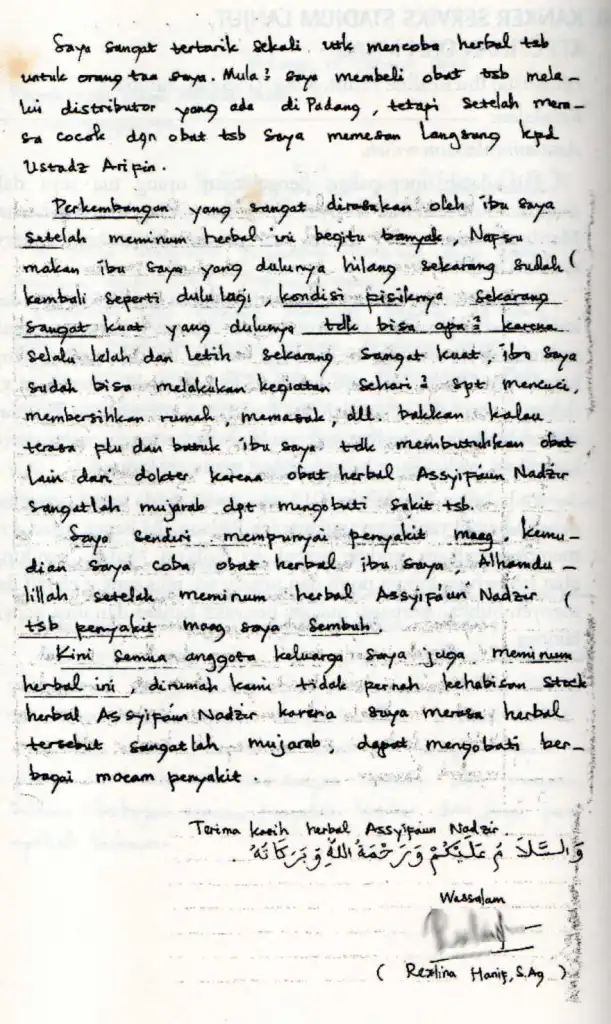 Saya sangat tertarik sekali utk mencoba herbal tsb
untuk orang tua saya. Mula2 saya membeli obat tsb mela-
lui distributor yang ada di Padang, tetapi setelah mera-
sa cocok dgn obat tsb saya memesan langsung kpd
Ustadz Aripin.
Perkembangan yang sangat dirasakan oleh ibu saya
setelah meminum herbal ini begitu banyak, Napsu
makan ibu saya yang dulunya hilang sekarang sudah
kembali seperti dulu lagi, kondisi pisiknya sekarang
sangat kuat yang dulunya tdk bisa apa2 karena
selalu lelah dan letih sekarang sangat kuat, ibu saya
sudah bisa melakukan kegiatan sehari2 spt mencuci,
membersihkan rumah, memasak, dll. bahkan kalau
terasa plu dan batuk ibu saya tdk membutuhkan obat
lain dari dokter karena obat herbal Assyifaun Nadzir
sangatlah mujarab dpt mengobati sakit tsb.
Saya sendiri mempunyai penyakit maag, kemu-
dian saya coba obat herbal ibu saya. Alhamdu-
lillah setelah meminum herbal Assyifaun Nadzir
tsb penyakit maag saya sembuh.
Kini semua anggota keluarga saya juga meminum
herbal ini, dirumah kami tidak pernah kehabisan stock
herbal Assyifaun Nadzir karena saya merasa herbal
tersebut sangatlah mujarab, dapat mengobati ber-
bagai macam penyakit.
Terima kasih herbal Assyifaun Nadzir.
وَالسَّلاَمُ عَلَيْكُمْ وَرَحْمَةُ اللهِ وَبَرَكَاتُهُ
Wassalam
( Rezlina Hanif, S.Ag )